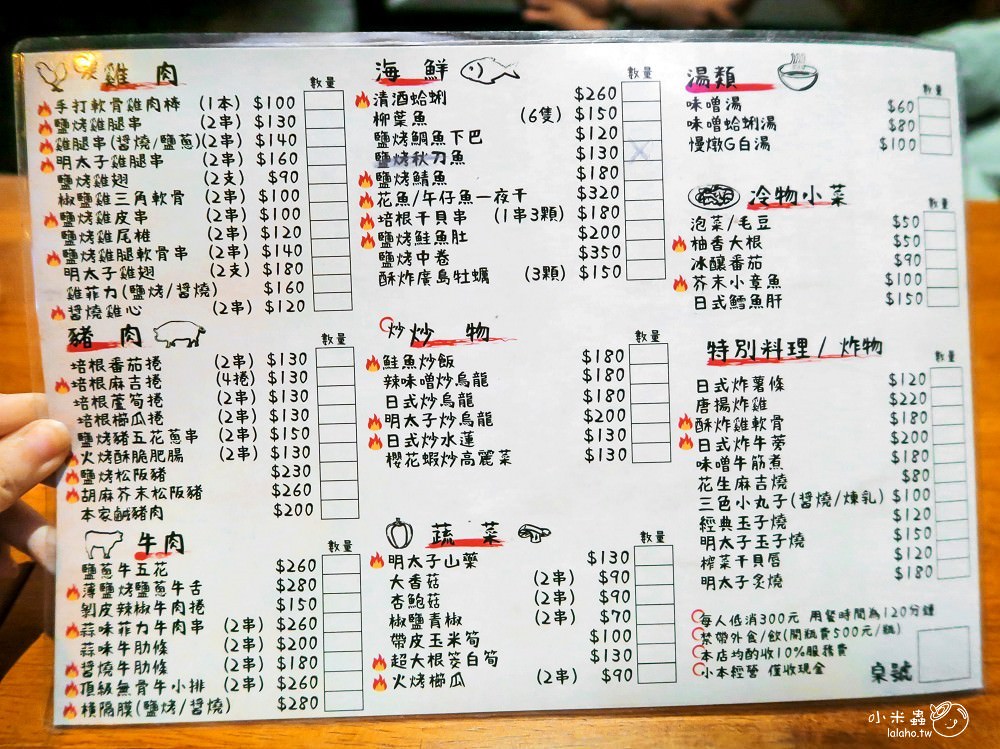 雞肉
數量
手打軟骨雞肉棒 (1本) $100
鹽烤雞腿串 (2串) $130
雞腿串(醬燒/鹽蔥)(2串) $140
明太子雞腿串 (2串) $160
鹽烤雞翅 (2支) $90
椒鹽雞三角軟骨 (2串) $100
鹽烤雞皮串 (2串) $100
鹽烤雞尾椎 (2串) $120
鹽烤雞腿軟骨串 (2串) $140
明太子雞翅 (2支) $180
雞菲力(鹽烤/醬燒) $160
醬燒雞心 (2串) $120
豬肉
數量
培根番茄捲 (2串) $130
培根麻吉捲 (4捲) $130
培根蘆筍捲 (2串) $130
培根櫛瓜捲 (2串) $130
鹽烤豬五花蔥串 (2串) $150
火烤酥脆肥腸 (2串) $130
鹽烤松阪豬 $230
胡麻芥末松阪豬 $260
本家鹹豬肉 $200
牛肉
數量
鹽蔥牛五花 $260
薄鹽烤鹽蔥牛舌 $280
剝皮辣椒牛肉捲 $150
蒜味菲力牛肉串 (2串) $260
蒜味牛肋條 (2串) $200
醬燒牛肋條 (2串) $180
頂級無骨牛小排 (2串) $260
橫隔膜(鹽烤/醬燒) $280
海鮮
數量
清酒蛤蜊 $260
柳葉魚 (6隻) $150
鹽烤鯛魚下巴 $120
鹽烤秋刀魚 $130
鹽烤鯖魚 $180
花魚/午仔魚一夜干 $320
培根干貝串 (1串3顆) $180
鹽烤鮭魚肚 $200
鹽烤中卷 $350
酥炸廣島牡蠣 (3顆) $150
炒炒物
數量
鮭魚炒飯 $180
辣味噌炒烏龍 $180
日式炒烏龍 $180
明太子炒烏龍 $200
日式炒水蓮 $130
櫻花蝦炒高麗菜 $130
蔬菜
數量
明太子山藥 $130
大香菇 (2串) $90
杏鮑菇 (2串) $90
椒鹽青椒 (2串) $70
帶皮玉米筍 $100
超大根筊白筍 $130
火烤櫛瓜 (2串) $90
湯類
數量
味噌湯 $60
味噌蛤蜊湯 $80
慢燉G白湯 $100
冷物小菜
數量
泡菜/毛豆 $50
柚香大根 $50
冰釀番茄 $90
芥末小章魚 $100
日式鱈魚肝 $150
特別料理/炸物
數量
日式炸薯條 $120
唐揚炸雞 $220
酥炸雞軟骨 $180
日式炸牛蒡 $200
味噌牛筋煮 $180
花生麻吉燒 $80
三色小丸子(醬燒/煉乳) $100
經典玉子燒 $120
明太子玉子燒 $150
榨菜干貝唇 $120
明太子炙燒 $180
每人低消300元 用餐時間為120分鐘
禁帶外食/飲(開瓶費500元/瓶)
本店均酌收10%服務費
小本經營 僅收現金
桌號
小米蟲
lalaho.tw